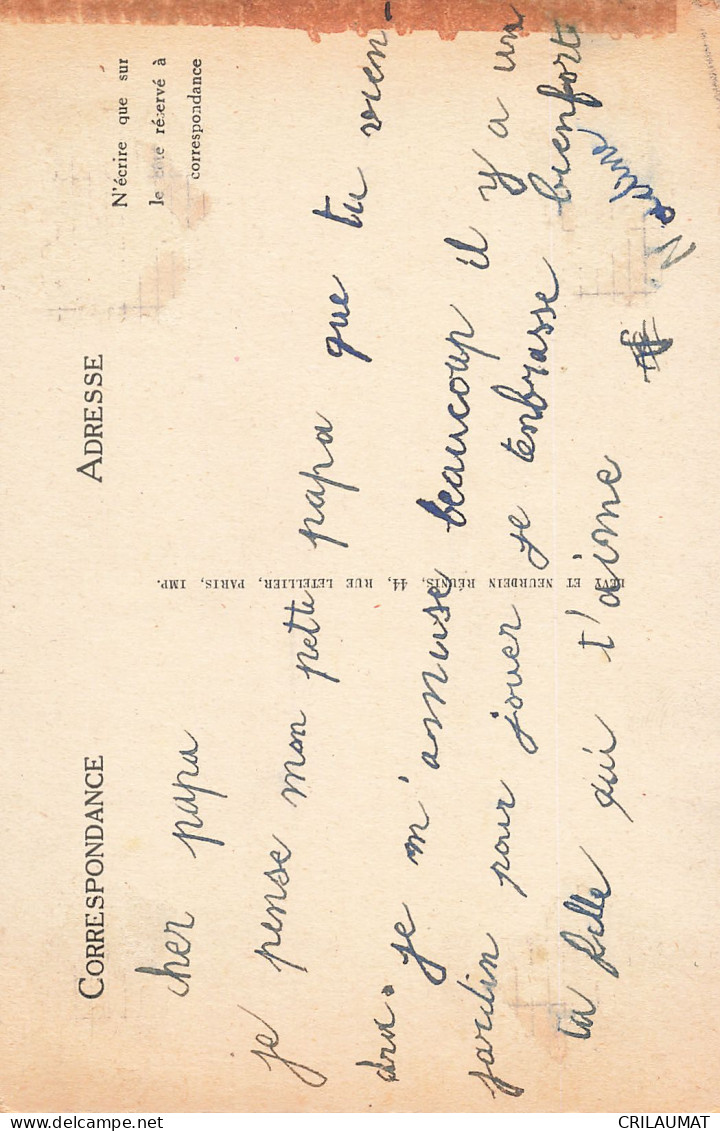 CORRESPONDANCE
ADRESSE
N'écrire que sur
le côté réservé à
correspondance
cher papa
je pense mon petit papa que tu vien-
dra. je m'amuse beaucoup il y a un
jardin pour jouer je tenbrasse bienfort
ta fille qui t'aime
Nadine
LÉVY ET NEURDEIN RÉUNIS, 44, RUE LETELLIER, PARIS, IMP.
CRILAUMAT